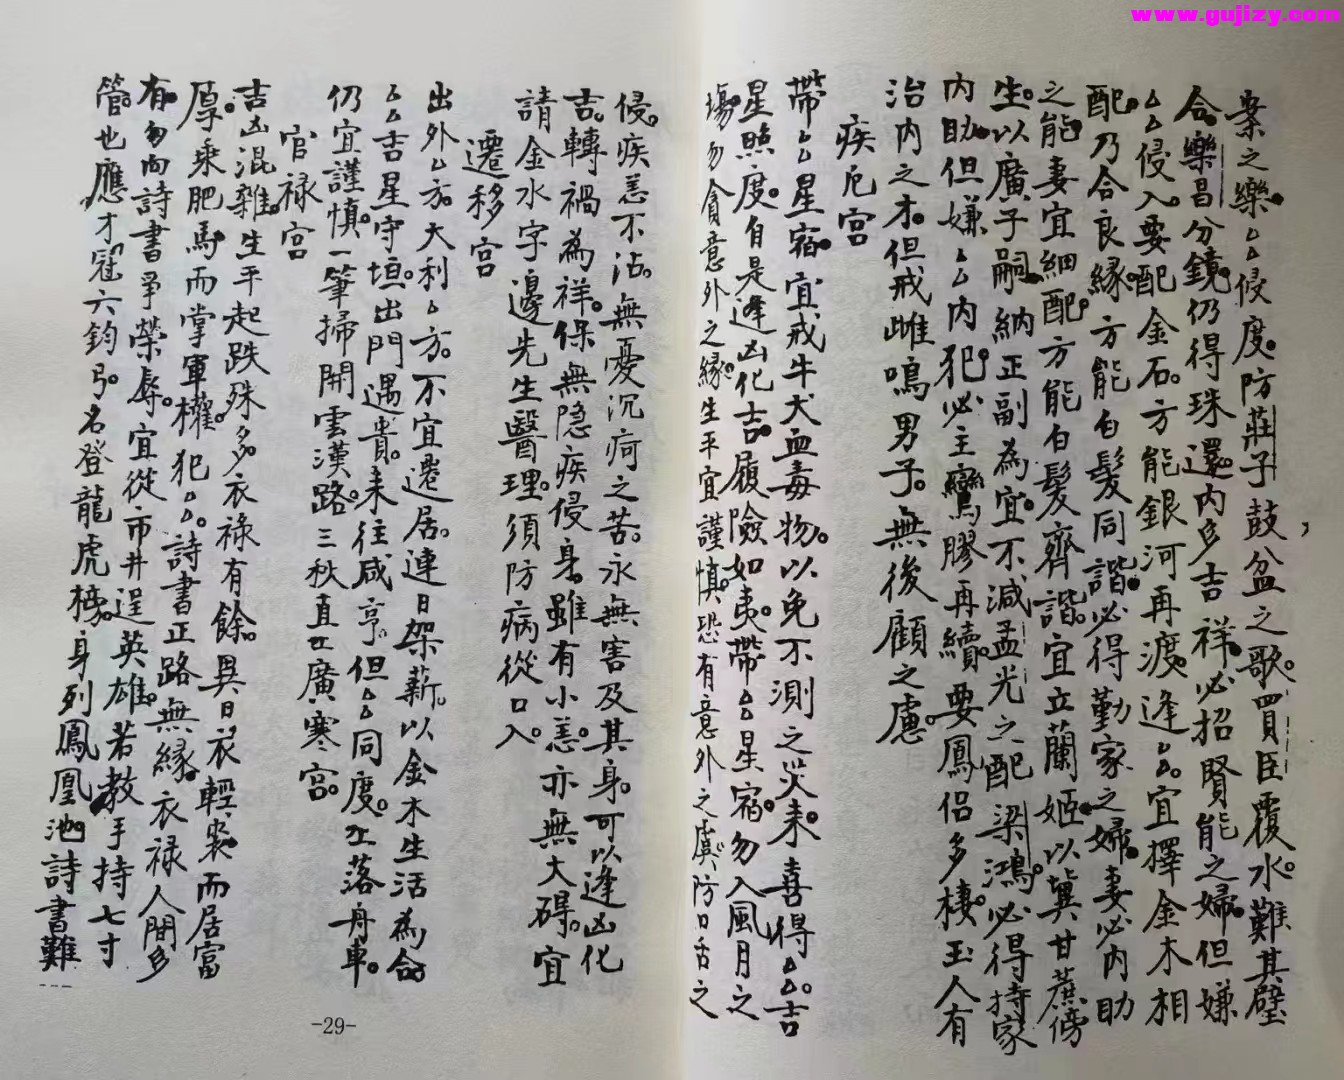 www.gujizy.com
案之樂。△△侵度。防莊子鼓盆之歌。買臣覆水。難其璧
合。樂昌分鏡。仍得珠還。内多吉祥。必招賢能之婦。但嫌
△△侵入。要配金石。方能銀河再渡。逢△△。宜擇金木相
配。乃合良緣。方能白髮同諧。必得勤家之婦。妻必内助
之能。妻宜細配。方能白髮齊諧。宜立蘭姬。以冀甘蔗傍
生。以廣子嗣。納正副為宜。不減孟光之配梁鴻。必得持家
内助。但嫌△△内犯。必主鸞膠再續。要鳳侣多棲。玉人有
治内之才。但戒雌鳴男子。無後顧之慮。
疾厄宮
帶△△星宿。宜戒牛犬血毒物。以免不測之災来。喜得△△吉
星照度。自是逢凶化吉。履險如夷。帶△△星宿。勿入風月之
塲。勿貪意外之緣。生平宜謹慎。恐有意外之虞。防口舌之
侵。疾恙不沾。無憂沉疴之苦。永無害及其身。可以逢凶化
吉。轉禍為祥。保無隐疾侵身。雖有小恙。亦無大碍。宜
請金水字邊先生醫理。須防病從口入。
遷移宮
出外△方。大利△方。不宜遷居。連日架薪。以金木生活為合
△△吉星守垣。出門遇貴。来往咸亨。但△△同度。㞢落舟車。
仍宜謹慎。一筆掃開雲漢路。三秋直㞢廣寒宮。
官禄宮
吉凶混雜。生平起跌殊多。衣禄有餘。異日衣輕裘而居富
厚。乘肥馬而掌軍權。犯△△。詩書正路無緣。衣禄人間多
有。勿向詩書爭榮辱。宜從市井逞英雄。若教手持七寸
管。也應才冠六鈞弓。名登龍虎榜。身列鳳凰池。詩書難
-29-